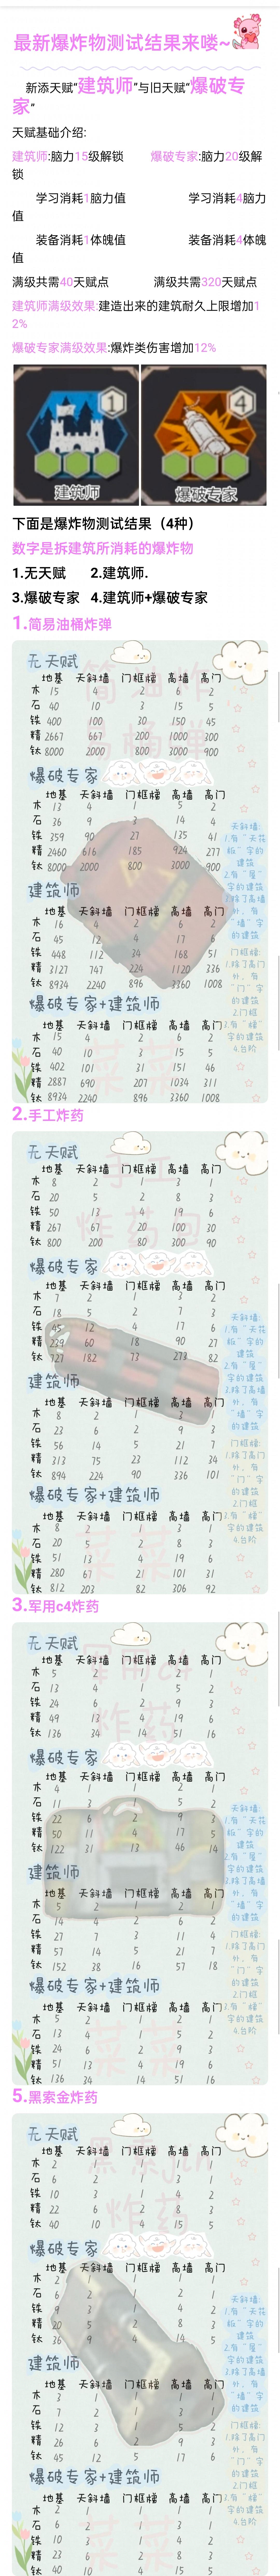 最新爆炸物测试结果来喽~
新添天赋“建筑师”与旧天赋“爆破专
家“
天赋基础介绍:
建筑师:脑力15级解锁 爆破专家:脑力20级解
锁
学习消耗1脑力值 学习消耗4脑力
值
装备消耗1体魄值 装备消耗4体魄
值
满级共需40天赋点 满级共需320天赋点
建筑师满级效果:建造出来的建筑耐久上限增加1
2%
爆破专家满级效果:爆炸类伤害增加12%
1 4
建筑师 爆破专家
下面是爆炸物测试结果（4种）
数字是拆建筑所消耗的爆炸物
1.无天赋 2.建筑师.
3.爆破专家 4.建筑师+爆破专家
1.简易油桶炸弹
无天赋
地基 天斜墙 门框槽 高墙 高门
木 15 4 2 6 2
石 40 10 3 15 5
铁 400 100 30 150 45
精 2667 667 200 1000 300
钛 8000 2000 800 3000 900
爆破专家
地基 天斜墙 门框槽 高墙 高门
木 13 4 2 5 2
石 36 9 3 14 4
铁 359 90 27 135 41
精 2460 616 185 924 277
钛 8000 2000 800 3000 900
建筑师
地基 天斜墙 门框槽 高墙 高门
木 16 4 2 6 2
石 45 12 4 17 6
铁 448 112 34 168 51
精 3127 747 224 1120 336
钛 8934 2240 896 3360 1008
爆破专家+建筑师
地基 天斜墙 门框槽 高墙 高门
木 15 4 2 6 2
石 40 10 3 15 5
铁 402 101 31 151 46
精 2887 690 207 1034 311
钛 8934 2240 896 3360 1008
天斜墙:
1.有“天花
板”字的
建筑
2.有“屋”
字的建筑
3.除了高墙
外，有
“墙”字
的建筑
门框槽:
1.除了高门
外，有
“门”字
的建筑
2.门框
3.有“槽”
字的建筑
4.台阶
2.手工炸药
无天赋
地基 天斜墙 门框槽 高墙 高门
木 8 2 1 3 1
石 20 5 2 8 3
铁 50 13 4 19 6
精 267 67 20 100 30
钛 800 200 80 300 90
爆破专家
地基 天斜墙 门框槽 高墙 高门
木 7 2 1 3 2
石 18 5 2 7 3
铁 45 12 4 17 6
精 239 60 18 90 27
钛 727 182 73 273 82
建筑师
地基 天斜墙 门框槽 高墙 高门
木 8 2 1 3 1
石 23 6 2 9 3
铁 56 14 5 21 7
精 313 75 23 112 34
钛 894 224 90 336 101
爆破专家+建筑师
地基 天斜墙 门框槽 高墙 高门
木 8 2 1 3 1
石 20 5 2 8 3
铁 51 13 4 19 6
精 280 67 21 101 31
钛 812 203 82 306 92
天斜墙:
1.有“天花
板”字的
建筑
2.有“屋”
字的建筑
3.除了高墙
外，有
“墙”字
的建筑
门框槽:
1.除了高门
外，有
“门”字
的建筑
2.门框
3.有“槽”
字的建筑
4.台阶
3.军用c4炸药
无天赋
地基 天斜墙 门框槽 高墙 高门
木 5 2 1 2 1
石 13 4 1 5 2
铁 24 6 2 9 3
精 49 13 4 19 6
钛 136 34 14 51 16
爆破专家
地基 天斜墙 门框槽 高墙 高门
木 4 1 1 2 1
石 11 3 1 5 2
铁 22 6 2 9 3
精 50 11 4 17 5
钛 122 31 13 46 14
建筑师
地基 天斜墙 门框槽 高墙 高门
木 5 2 1 2 1
石 14 4 2 6 2
铁 27 7 3 11 4
精 57 14 5 21 7
钛 152 38 16 57 18
爆破专家+建筑师
地基 天斜墙 门框槽 高墙 高门
木 5 2 1 2 1
石 13 4 1 5 2
铁 24 6 2 9 3
精 51 13 4 19 6
钛 136 34 14 51 16
天斜墙:
1.有“天花
板”字的
建筑
2.有“屋”
字的建筑
3.除了高墙
外，有
“墙”字
的建筑
门框槽:
1.除了高门
外，有
“门”字
的建筑
2.门框
3.有“槽”
字的建筑
4.台阶
5.黑索金炸药
无天赋
地基 天斜墙 门框槽 高墙 高门
木 2 1 1 1 1
石 6 2 1 3 1
铁 10 3 1 4 2
精 22 6 2 8 3
钛 40 10 4 15 5
爆破专家
地基 天斜墙 门框槽 高墙 高门
木 2 1 1 1 1
石 6 2 1 2 1
铁 9 3 1 4 2
精 20 5 2 8 3
钛 36 9 4 14 5
建筑师
地基 天斜墙 门框槽 高墙 高门
木 3 1 1 1 1
石 7 2 1 3 1
铁 12 3 1 5 2
精 26 6 2 9 3
钛 45 12 5 17 6
爆破专家+建筑师
地基 天斜墙 门框槽 高墙 高门
木 2 1 1 1 1
石 6 2 1 3 1
铁 10 3 1 4 2
精 23 6 2 8 3
钛 40 10 4 15 5
天斜墙:
1.有“天花
板”字的
建筑
2.有“屋”
字的建筑
3.除了高墙
外，有
“墙”字
的建筑
门框槽:
1.除了高门
外，有
“门”字
的建筑
2.门框
3.有“槽”
字的建筑
4.台阶